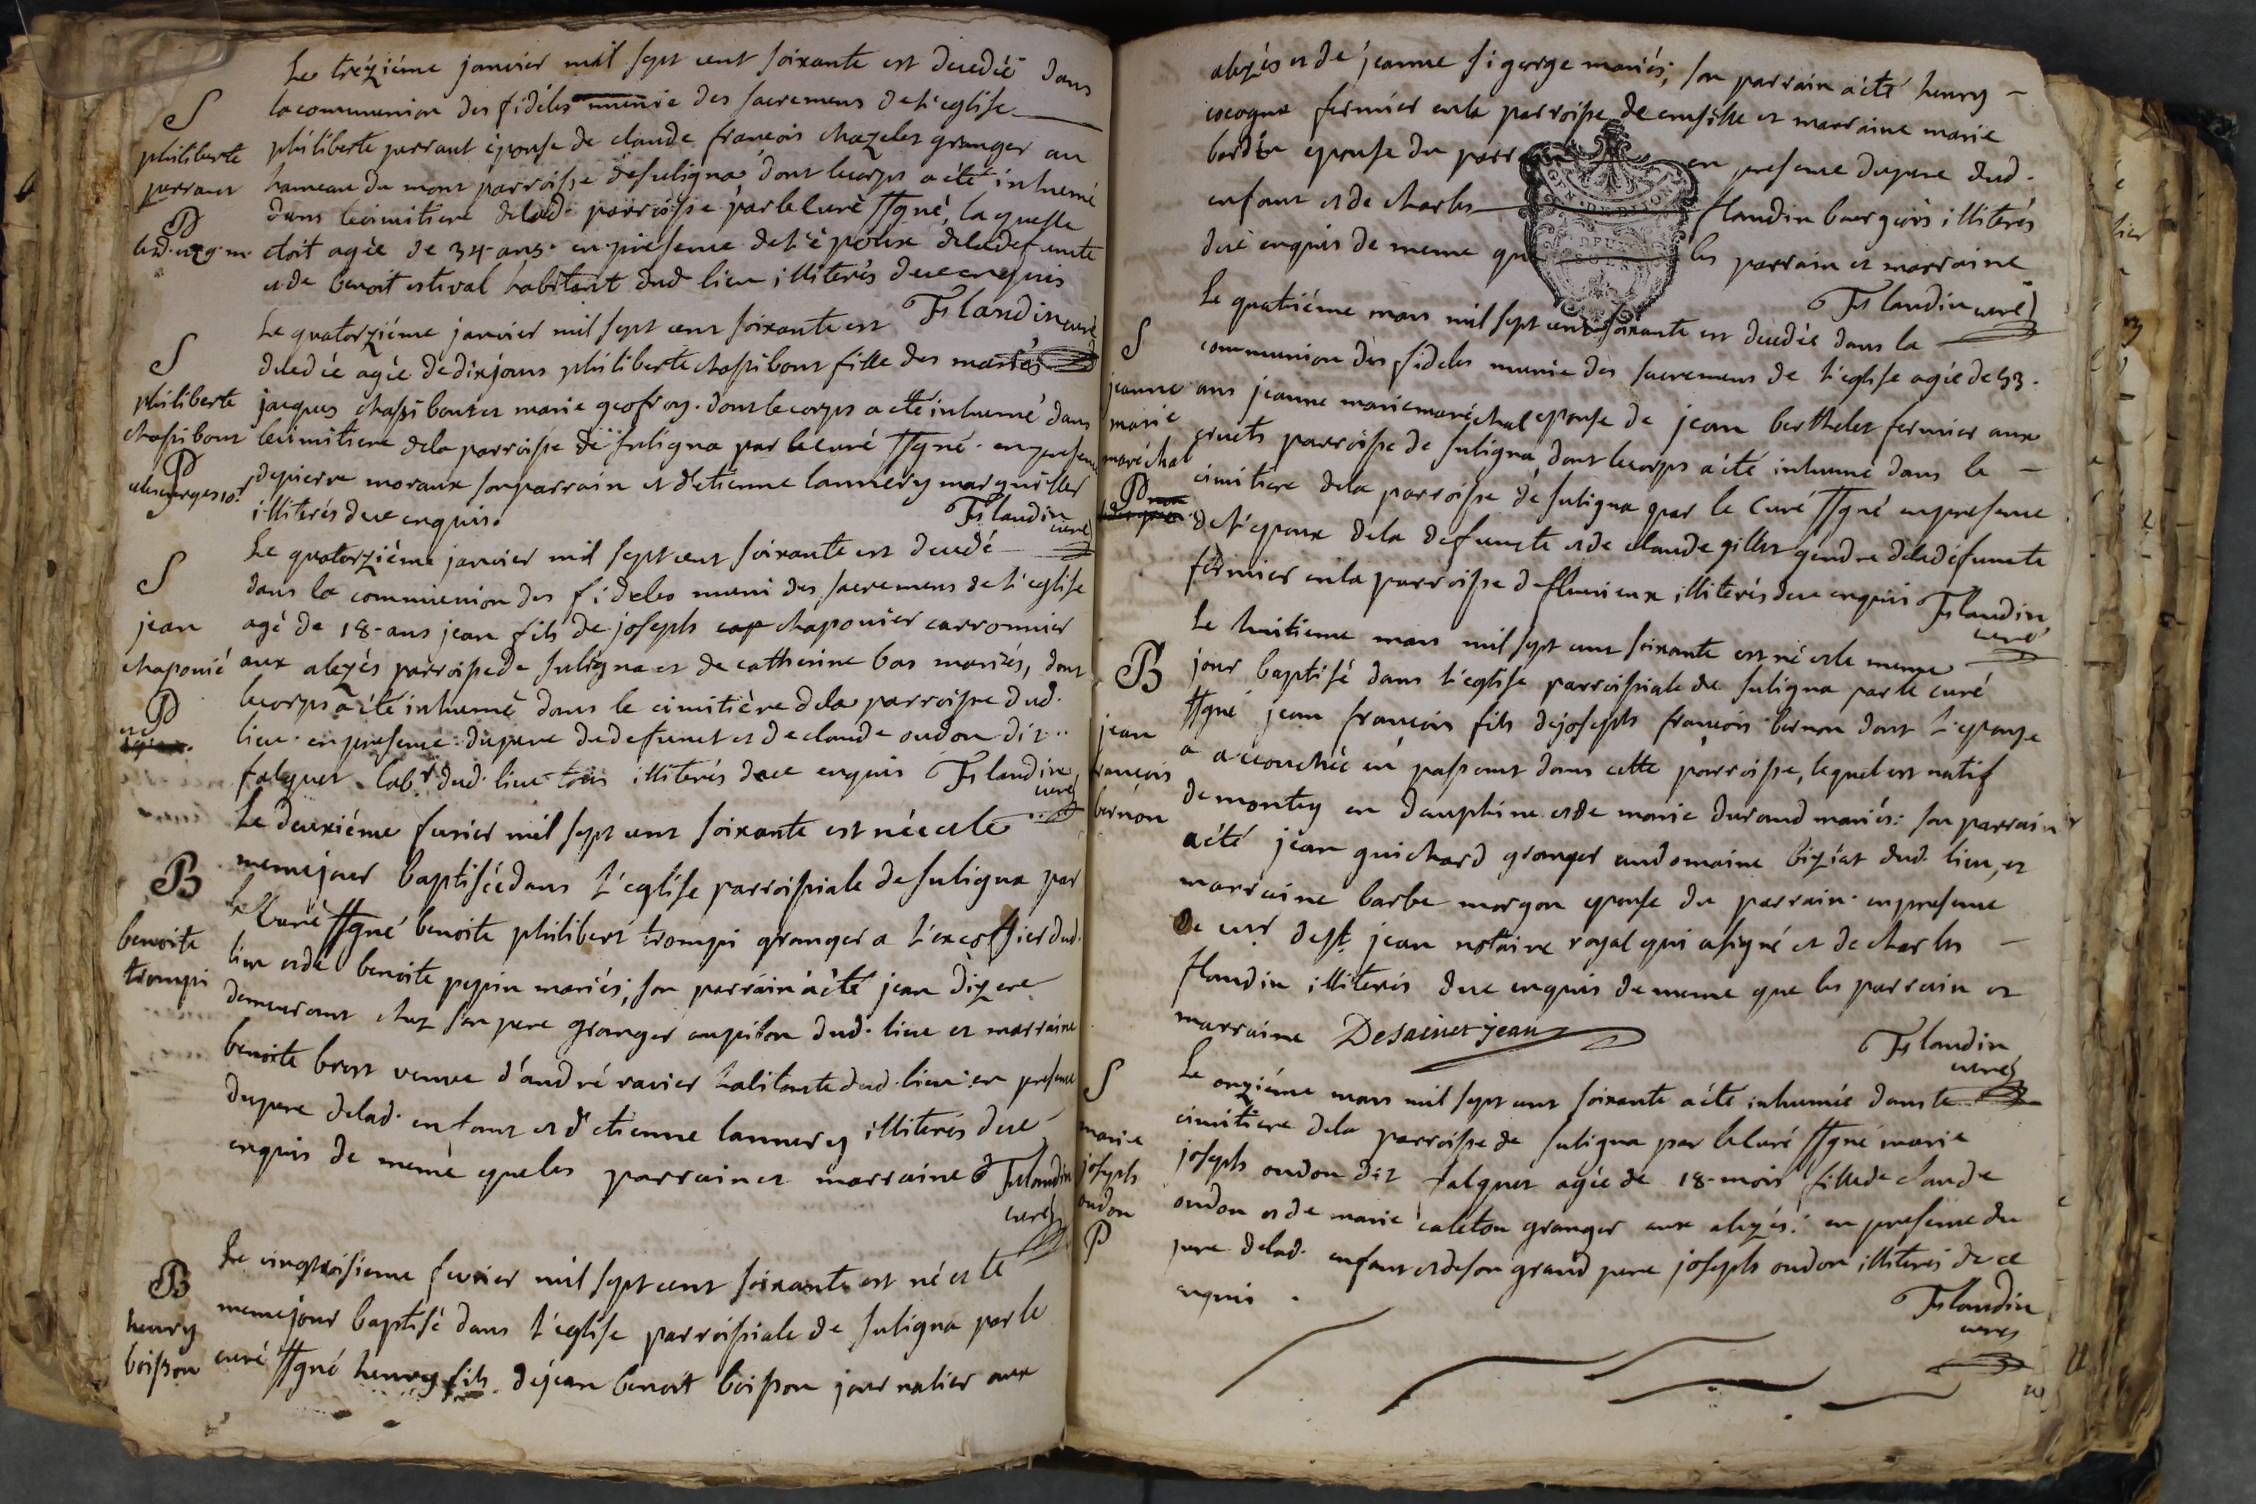 Le tréziéme janvier mil sept cent soixante est decedée dans
la communion des fidéles munie des sacremens de l'eglise
S
philiberte perraut épouse de claude francois chazelet granger au
philiberte
perraut
hameau du mont parroisse de suligna dont le corps a été inhumé
dans le cimitiere de lad. parroisse par le curé ssgné, la quelle
P
etoit agée de 34 ans. en présence de l'époux de la defuncte
et de benoit estival habitant dud lieu illiterés de ce enquis
Flandin curé
Le quatorziéme janvier mil sept cent soixante est
S
decedée agée de dix jours philiberte chassibout fille des mariés
philiberte
chassibout
jacques chassibout et marie geofroy. dont le corps a été inhumé dans
le cimitiere de la parroisse de suligna par le curé ssgné. en presence
P
de pierre moraux son parrain et d'etienne lannery marguillier
illiterés de ce enquis.
Flandin curé
Le quatorziéme janvier mil sept cent soixante est decedé
S
dans la communion des fideles muni des sacremens de l'eglise
jean
chaponié
agé de 18 ans jean fils de joseph chaponier carronnier
aux alezés parroisse de suligna et de catherine bas mariés, dont
P
le corps a été inhumé dans le cimitière de la parroisse dud.
lieu. en presence du pere du defunct et de claude oudon dit
falquet labr dud. lieu tous illiterés de ce enquis
Flandin curé
Le deuxiéme fevrier mil sept cent soixante est née et le
B
meme jour baptisée dans l'eglise parroissiale de suligna par
benoite
trompi
le Curé ssgné benoite philibert trompi granger a dud.
lieu et de benoite pepin mariés; son parrain a été jean dizere
demeurant chez son pere granger au pilon dud. lieu et marraine
benoite brost veuve d'andré ravier habitante dud. lieu en presence
du pere de lad. enfant et d'etienne lannery illiterés de ce
enquis de meme que les parrain et marraine
Flandin curé
Le cinq fevrier mil sept cent soixante est né et le
B
henry
boisson
meme jour baptisé dans l'eglise parroissiale de suligna par le
curé ssgné henry fils de jean benoit boisson journalier aux
alezés et de jeanne sigorge mariés; son parrain a été henry
cocogne fermier en la parroisse de crusille et marraine marie
epouse du en presence du pere dud.
enfant et de charles flandin bourgeois illiterés
de ce enquis de meme que les parrain et marraine
Flandin curé
Le quatriéme mars mil sept cent soixante est decedée dans la
S
communion des fideles munie des sacremens de l'eglise agée de 53
jeanne
marie
maréchal
ans jeanne marie maréchal epouse de jean berthelet fermier aux
cruets parroisse de suligna, dont le corps a été inhumé dans le
cimitiere de la parroisse de suligna par le Curé ssgné en presence
P
de l'epoux de la defuncte et de claude gillet gendre de la defuncte
fermier en la parroisse de fluirieux illiterés de ce enquis
Flandin curé
Le huitieme mars mil sept cent soixante est né et le meme
B
jour baptisé dans l'eglise parroissiale de suligna par le curé
jean
francois
bernon
ssgné jean francois fils de joseph francois bernon dont l'epouse
a accouchée en passant dans cette parroisse, lequel est natif
de montey en dauphine et de marie durand mariés: son parrain
a été jean guichard granger au domaine biziat dud. lieu, et
marraine barbe morgon epouse du parrain. en presence
de deSt. jean notaire royal qui a signé et de charles
flandin illiterés de ce enquis de meme que les parrain et
marraine
Desainct jean
Flandin curé
Le onziéme mars mil sept cent soixante a été inhumée dans le
S
cimitiere de la parroisse de suligna par le curé ssgné marie
marie
joseph
oudon
P
joseph oudon dit falquet agée de 18 mois fille de claude
oudon et de marie caleton granger aux alezés. en presence du
pere de lad. enfant et de son grand pere joseph oudon illiterés de ce
enquis.
Flandin curé